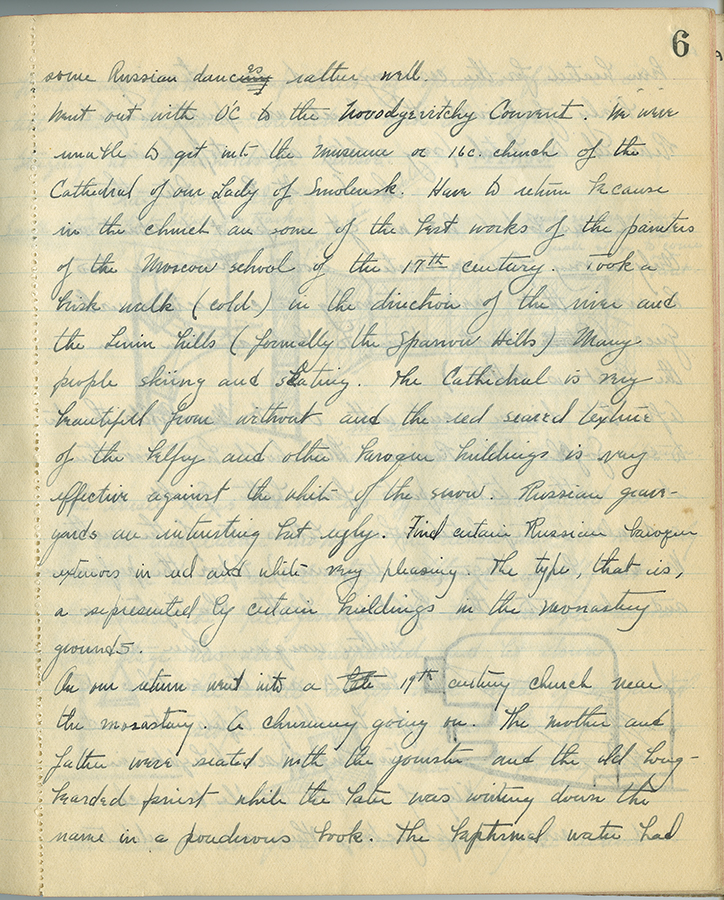 6
some Russian dances rather well.
Went out with O'C to the Novodyevitchy Convent. We were
unable to get into the museum or 16c. church of the
Cathedral of our Lady of Smolensk. Have to return because
in the church are some of the best works of the painters
of the Moscow school of the 17th century. Took a
brisk walk (cold) in the direction of the river and
the Linin hills (formally the Sparrow Hills) Many
people skiing and skating. The Cathedral is very
beautiful from without and the red seared texture
of the belfry and other baroque buildings is very
effective against the white of the snow. Russian grave-
yards are interesting but ugly. Find certain Russian baroque
exteriors in red and white very pleasing. The type, that is,
a represented by certain buildings in the monastery
grounds.
On our return went into a late 19th century church near
the monastary. A chriseniny going on. The mother and
father were seated with the yourster and the old long-
bearded priest while the later was writing down the
name in a ponderous book. The baptismal water had